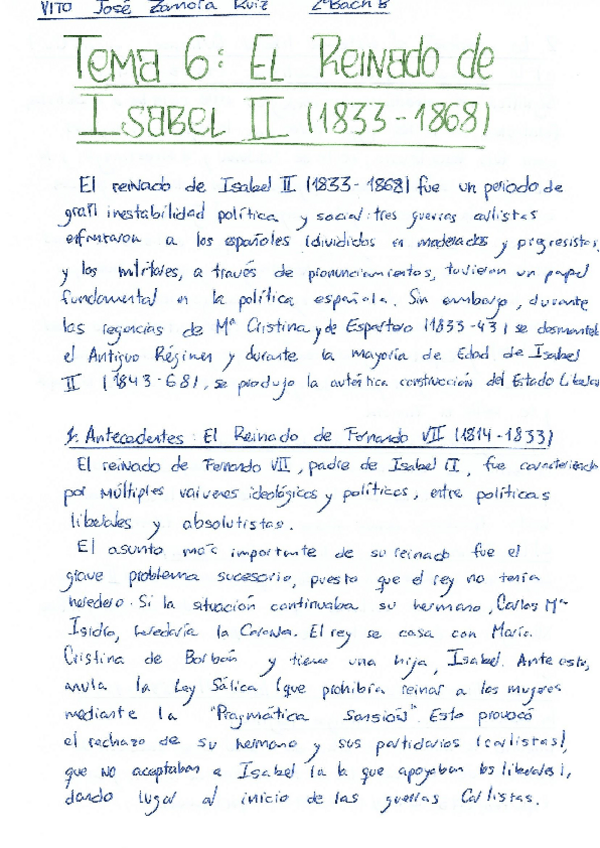 VITO José Zamora Ruiz 2ºBach B
Tema 6: El Reinado de
Isabel II (1833-1868)
El reinado de Isabel II (1833-1868) fue un periodo de
gran inestabilidad política y social: tres guerras carlistas
enfrentaron a los españoles (divididos en moderados y progresistas,
y los militares, a través de pronunciamientos, tuvieron un papel
fundamental en la política española. Sin embargo, durante
las regencias de Mª Cristina y de Espartero (1833-43) se desmantel
el Antiguo Régimen y durante la mayoría de Edad de Isabel
II (1843-68), se produjo la auténtica construcción del Estado Liberal
1. Antecedentes: El Reinado de Fernando VII (1814-1833)
El reinado de Fernando VII, padre de Isabel II, fue caracterizado
por múltiples vaivenes ideológicos y políticos, entre políticas
liberales y absolutistas.
El asunto más importante de su reinado fue el
grave problema sucesorio, puesto que el rey no tenía
heredero. Si la situación continuaba su hermano, Carlos Mª
Isidro, heredaría la Corona. El rey se casa con María
Cristina de Borbón y tiene una hija, Isabel. Ante esto,
anula la Ley Sálica (que prohibía reinar a las mujeres
mediante la "Pragmática Sansión". Esto provocó
el rechazo de su hermano y sus partidarios (carlistas),
que no aceptaban a Isabel (a la que apoyaban los liberales),
dando lugar al inicio de las guerras Carlistas.